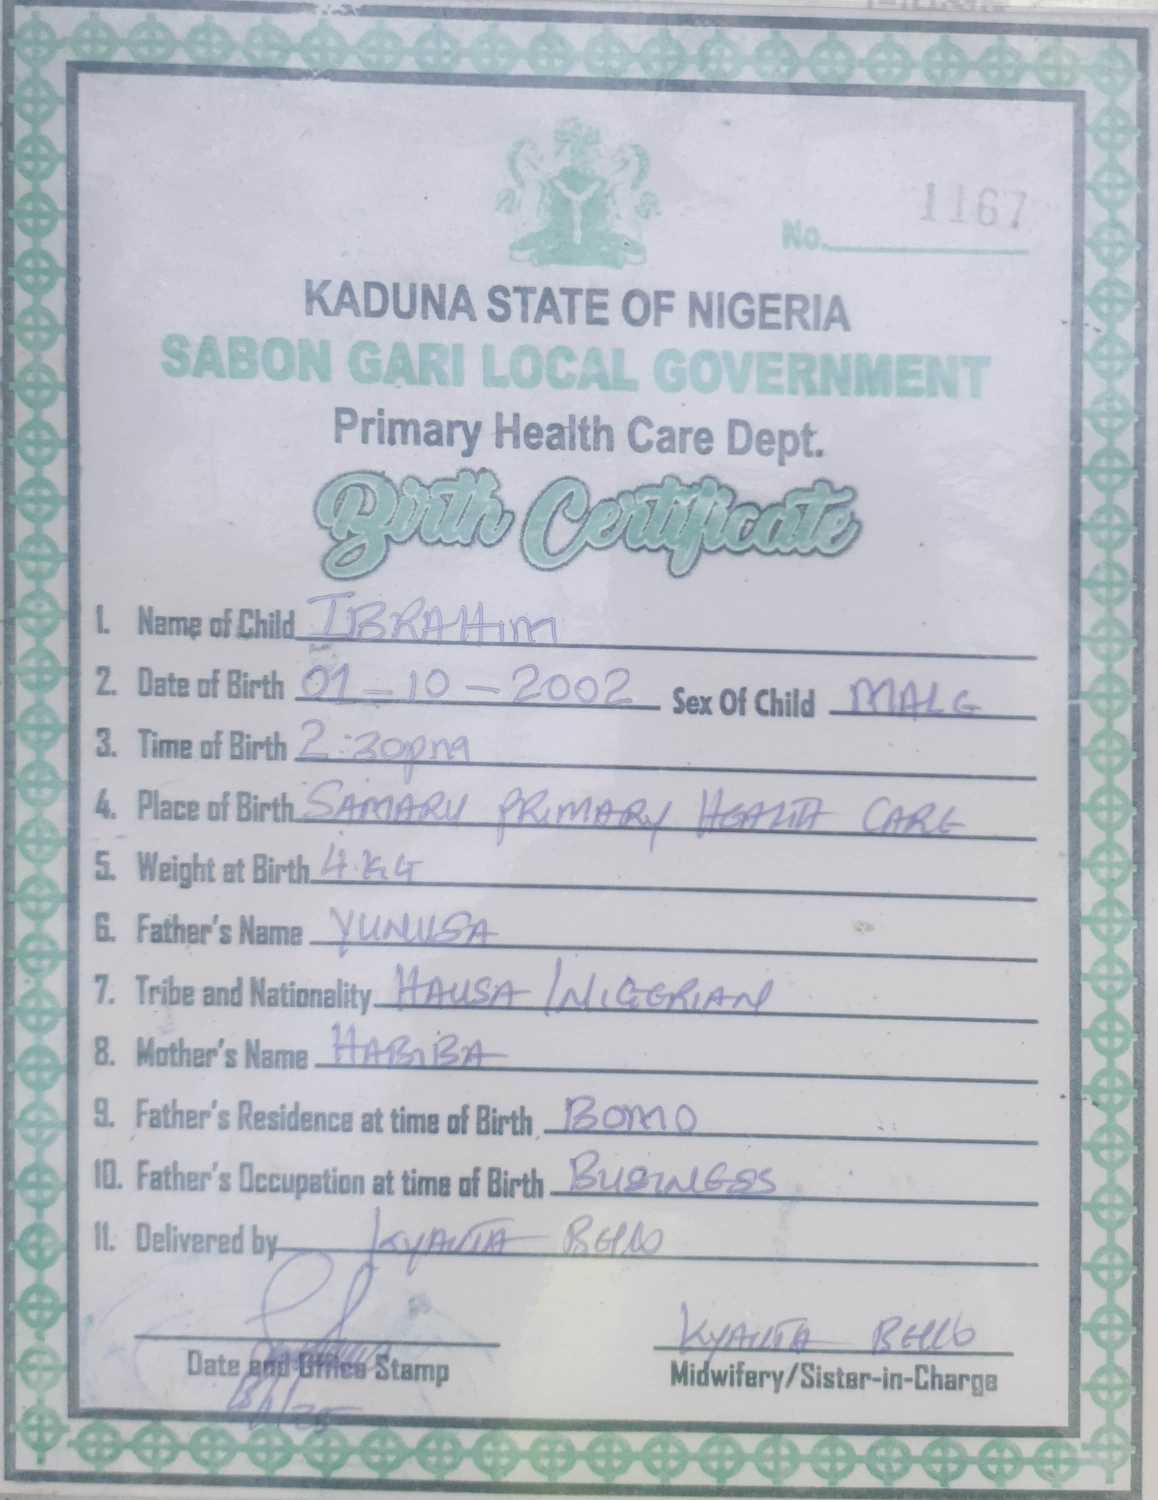 No. 1167
KADUNA STATE OF NIGERIA
SABON GARI LOCAL GOVERNMENT
Primary Health Care Dept.
Birth Certificate
1. Name of Child IBRAHIM
2. Date of Birth 01-10-2002 Sex Of Child MALE
3. Time of Birth 2:30pm
4. Place of Birth SAMARU PRIMARY HEALTH CARE
5. Weight at Birth 4.KG
6. Father's Name YUNUSA
7. Tribe and Nationality HAUSA/NIGERIAN
8. Mother's Name HABIBA
9. Father's Residence at time of Birth BOMO
10. Father's Occupation at time of Birth BUSINESS
11. Delivered by KYAUTA BELLO
KYAUTA BELLO
Date and Office Stamp Midwifery/Sister-in-Charge